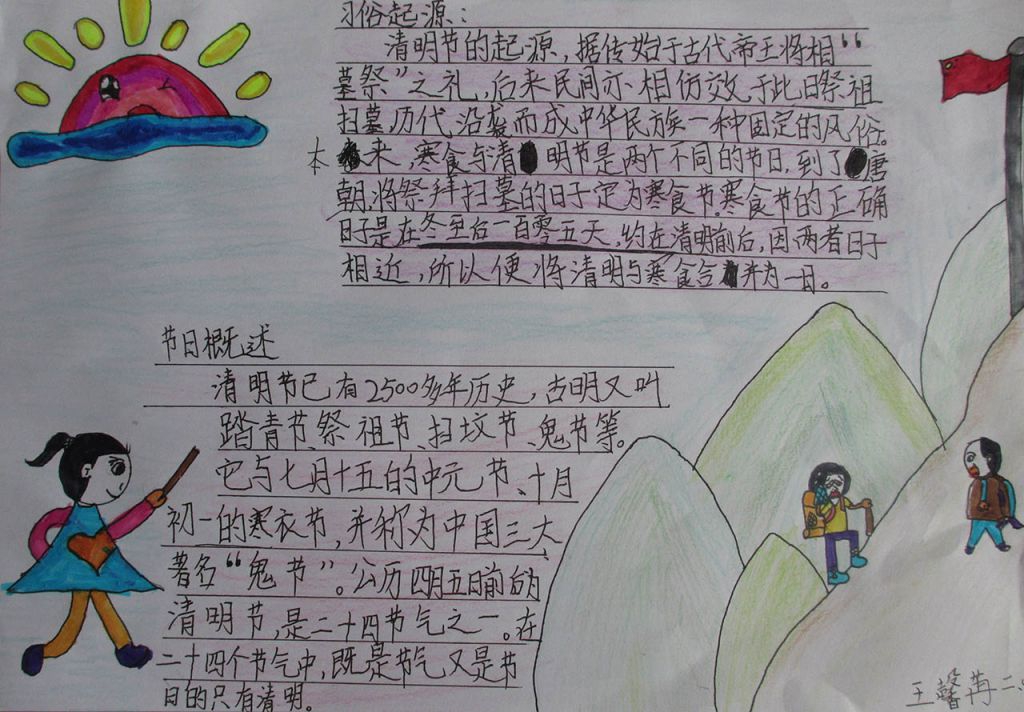 习俗起源:
清明节的起源,据传始于古代帝王将相“
墓祭”之礼,后来民间亦相仿效于此日祭祖
扫墓,历代沿袭而成中华民族一种固定的风俗。
本来寒食与清明节是两个不同的节日,到了唐
朝将祭拜扫墓的日子定为寒食节。寒食节的正确
日子是在冬至后一百零五天,约在清明前后,因两者日子
相近,所以便将清明与寒食合并为一日。
节日概述
清明节已有2500多年历史,古明又叫
踏青节、祭祖节、扫坟节、鬼节等。
它与七月十五的中元节、十月
初一的寒衣节,并称为中国三大
著名“鬼节”。公历四月五日前的为
清明节,是二十四节气之一。在
二十四个节气中,既是节气又是节
日的只有清明。
王馨苒 二